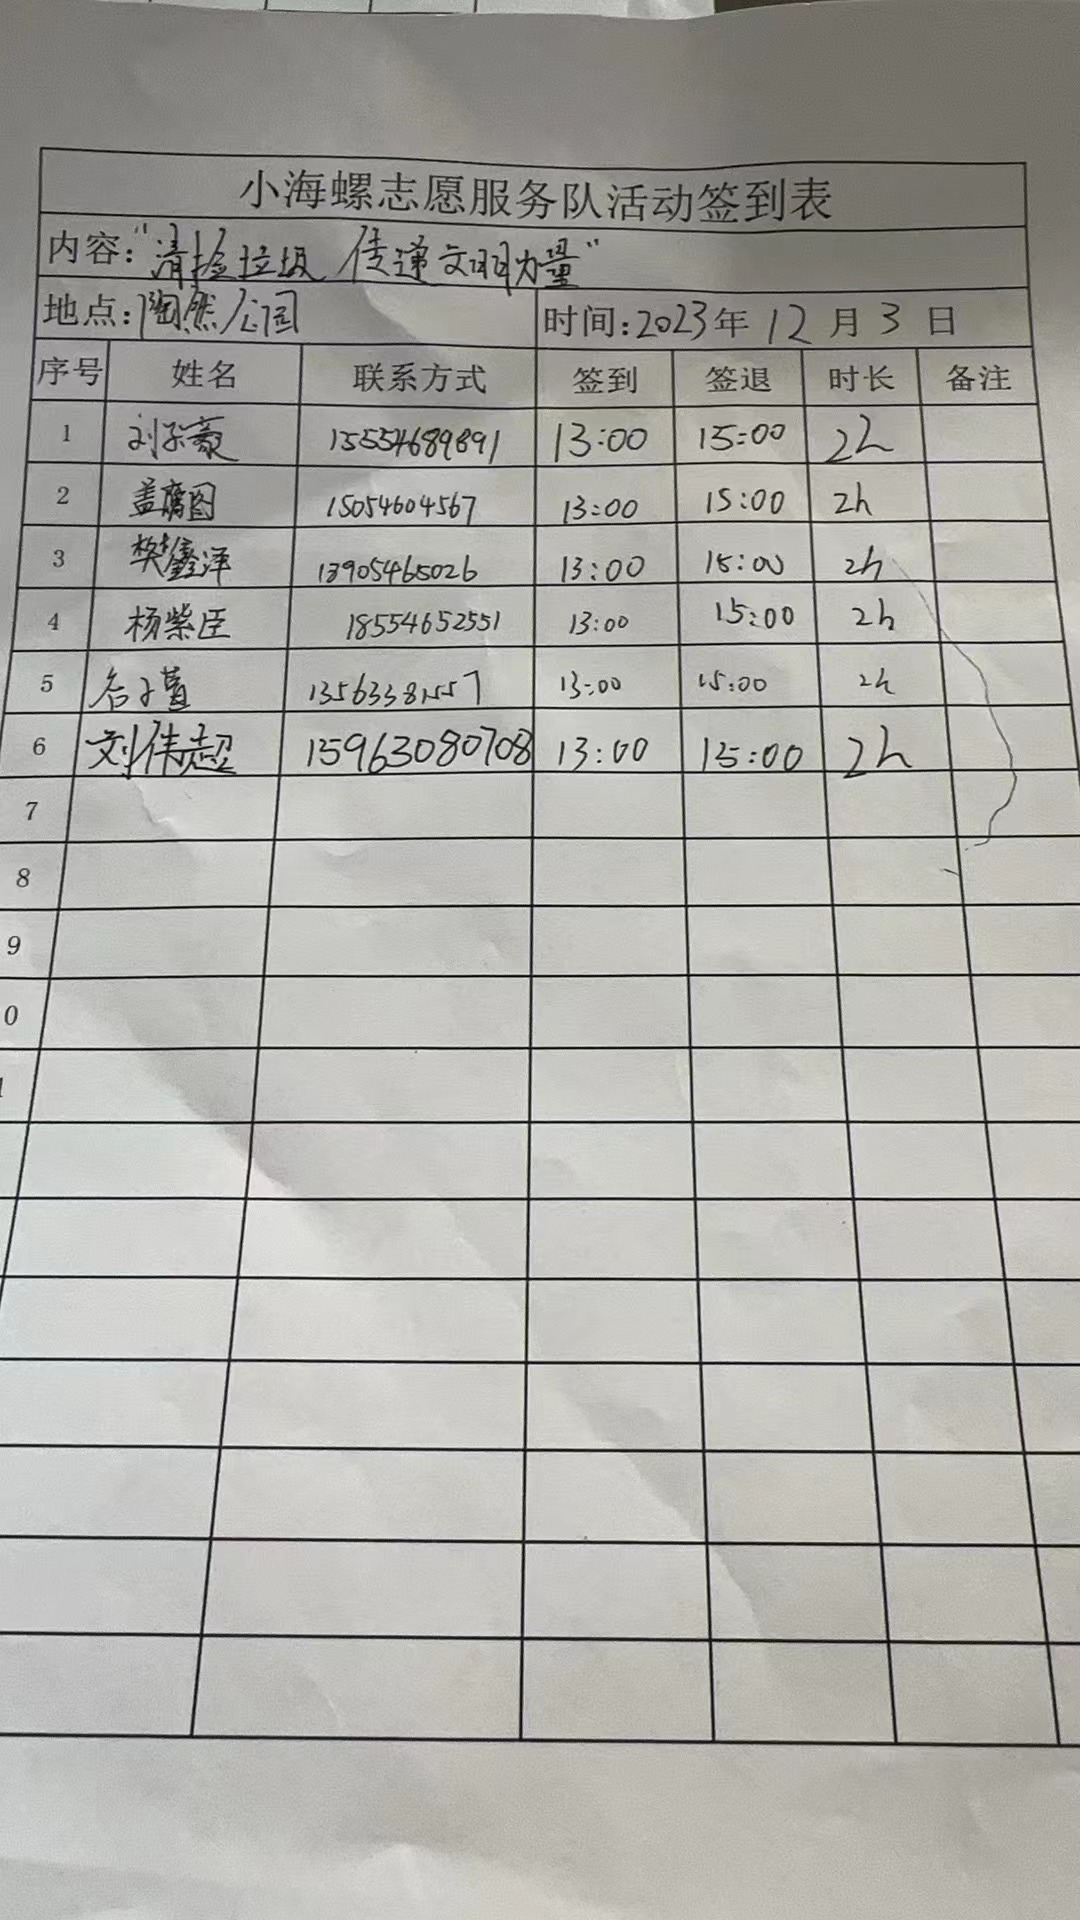 小海螺志愿服务队活动签到表
内容:“清捡垃圾 传递文明力量”
地点:陶然公园 时间:2023年 12 月 3 日
序号 姓名 联系方式 签到 签退 时长 备注
1 刘豪 15554689891 13:00 15:00 2h
2 盖腾图 15054604567 13:00 15:00 2h
3 樊鑫泽 13905465026 13:00 15:00 2h
4 杨紫臣 18554652551 13:00 15:00 2h
5 13:00 15:00 2h
6 刘伟超 15963080708 13:00 15:00 2h
7
8
9
0
1